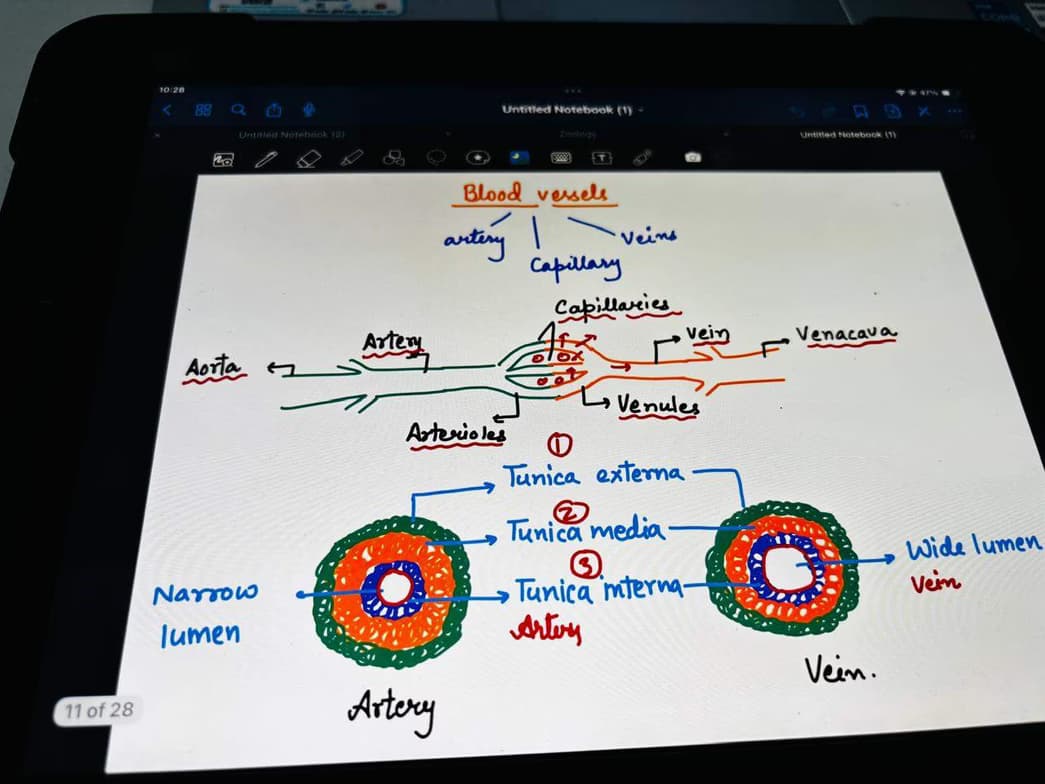 10:28
47%
Untitled Notebook (1)
Untitled Notebook (2)
Zoology
Untitled Notebook (1)
T
Blood vessels
artery
Capillary
Veins
Capillaries
Artery
Vein
Venacava
Aorta
Venules
Arterioles
①
Tunica externa
②
Tunica media
③
Tunica interna
Artery
Narrow
lumen
Wide lumen
Vein
Artery
Vein.
11 of 28